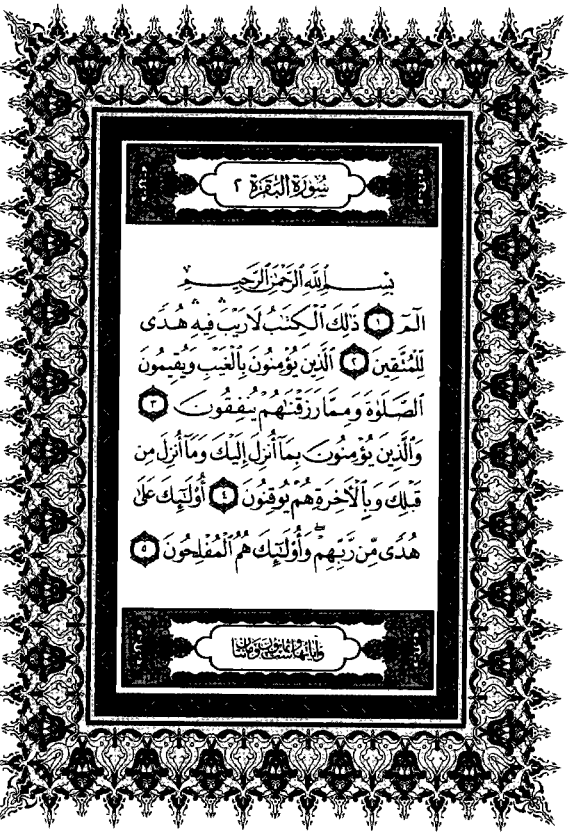 سُورَةُ البَقَرَةِ ٢
بِسْمِ ٱللَّهِ ٱلرَّحْمَٰنِ ٱلرَّحِيمِ
الٓمٓ ١ ذَٰلِكَ ٱلْكِتَٰبُ لَا رَيْبَ ۛ فِيهِ ۛ هُدًى
لِّلْمُتَّقِينَ ٢ ٱلَّذِينَ يُؤْمِنُونَ بِٱلْغَيْبِ وَيُقِيمُونَ
ٱلصَّلَوٰةَ وَمِمَّا رَزَقْنَٰهُمْ يُنفِقُونَ ٣
وَٱلَّذِينَ يُؤْمِنُونَ بِمَآ أُنزِلَ إِلَيْكَ وَمَآ أُنزِلَ مِن
قَبْلِكَ وَبِٱلْءَاخِرَةِ هُمْ يُوقِنُونَ ٤ أُو۟لَٰٓئِكَ عَلَىٰ
هُدًى مِّن رَّبِّهِمْ ۖ وَأُو۟لَٰٓئِكَ هُمُ ٱلْمُفْلِحُونَ ٥
وآياتها ستّ وثمانون ومائتان